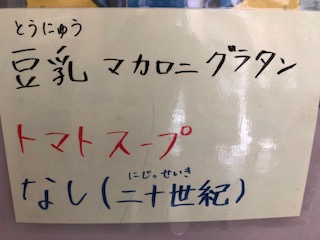 とうにゅう
豆乳 マカロニ グラタン
トマトスープ
にじっせいき
なし(二十世紀)